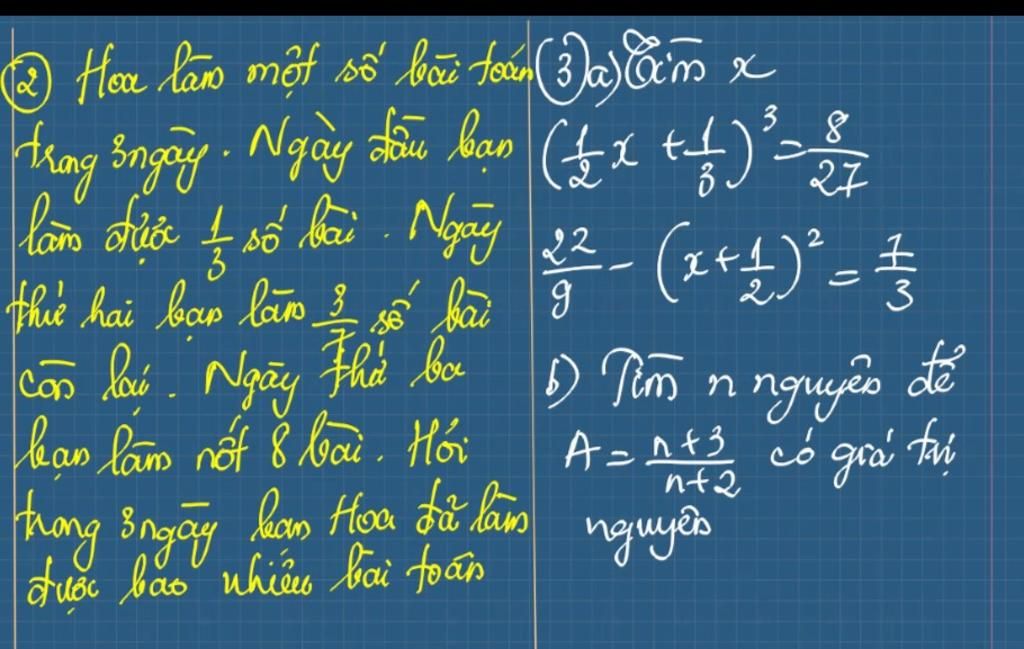 ② Hoa làm một số bài toán
trong 3 ngày. Ngày đầu bạn
làm được 1/3 số bài. Ngày
thứ hai bạn làm 3/7 số bài
còn lại. Ngày thứ ba
bạn làm nốt 8 bài. Hỏi
trong 3 ngày bạn Hoa đã làm
được bao nhiêu bài toán
③ a) Tìm x
(1/2 x + 1/3)³ = 8/27
22/9 - (x + 1/2)² = 1/3
b) Tìm n nguyên để
A = n+3/n+2 có giá trị
nguyên